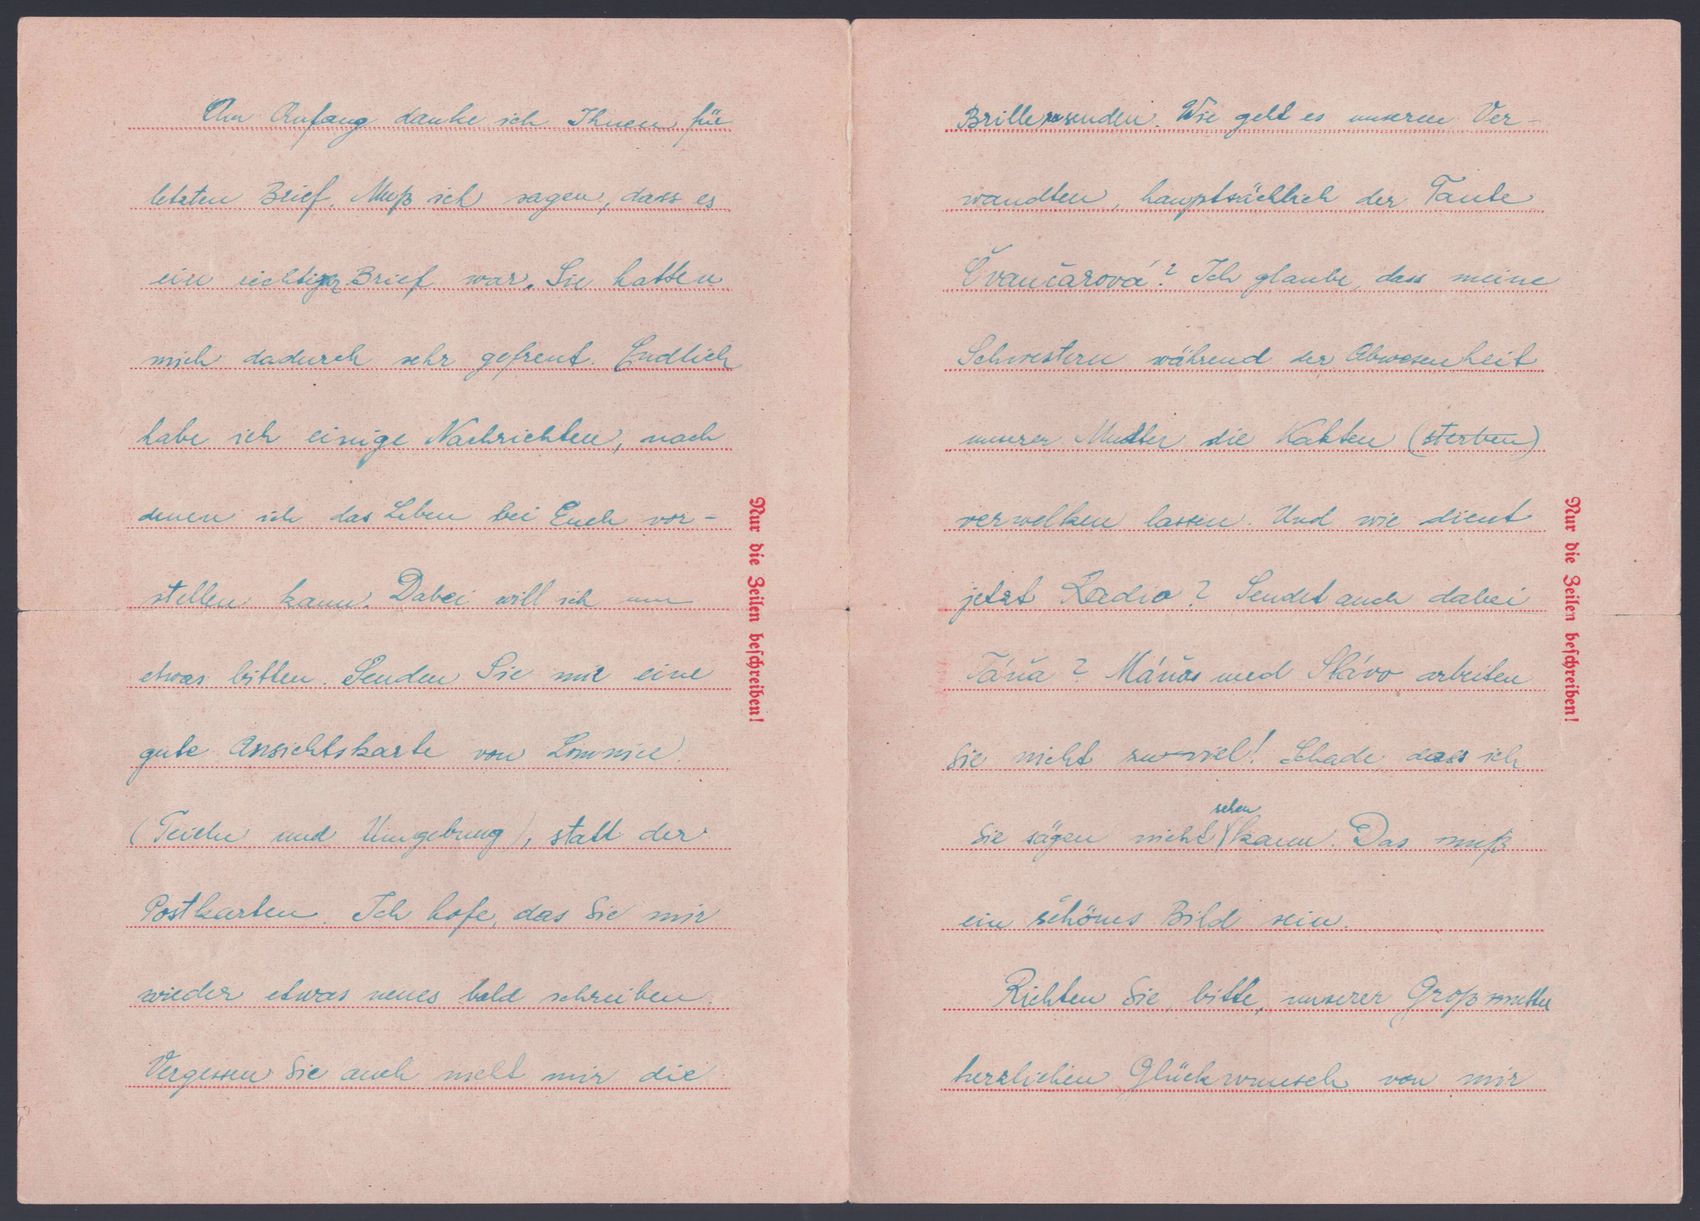 Am Anfang danke ich Ihnen für
letzten Brief. Muß ich sagen, dass es
ein richtiger Brief war. Sie hatten
mich dadurch sehr gefreut. Endlich
habe ich einige Nachrichten, nach
denen ich das Leben bei Euch vor-
stellen kann. Dabei will ich um
etwas bitten. Senden Sie mir eine
gute Ansichtskarte von Lomnice.
(Teiche und Umgebung), statt der
Postkarten. Ich hofe, das Sie mir
wieder etwas neues bald schreiben.
Vergessen Sie auch nicht mir die
Nur die Zeilen beschreiben!
Brille zusenden. Wie geht es unseren Ver-
wandten, hauptsächlich der Tante
Čvančarová? Ich glaube, dass meine
Schwestern während der Abwesenheit
unserer Mutter die Kakten (sterben)
verwelken lassen. Und wie dient
jetzt Radio? Sendet auch dabei
Táňa? Máňa und Slávo arbeiten
Sie nicht zu viel! Schade dass ich
Sie sägen nicht sehen kann. Das muß
ein schönes Bild sein.
Richten Sie, bitte, unserer Großmutter
herzlichen Glückwunsch von mir
Nur die Zeilen beschreiben!